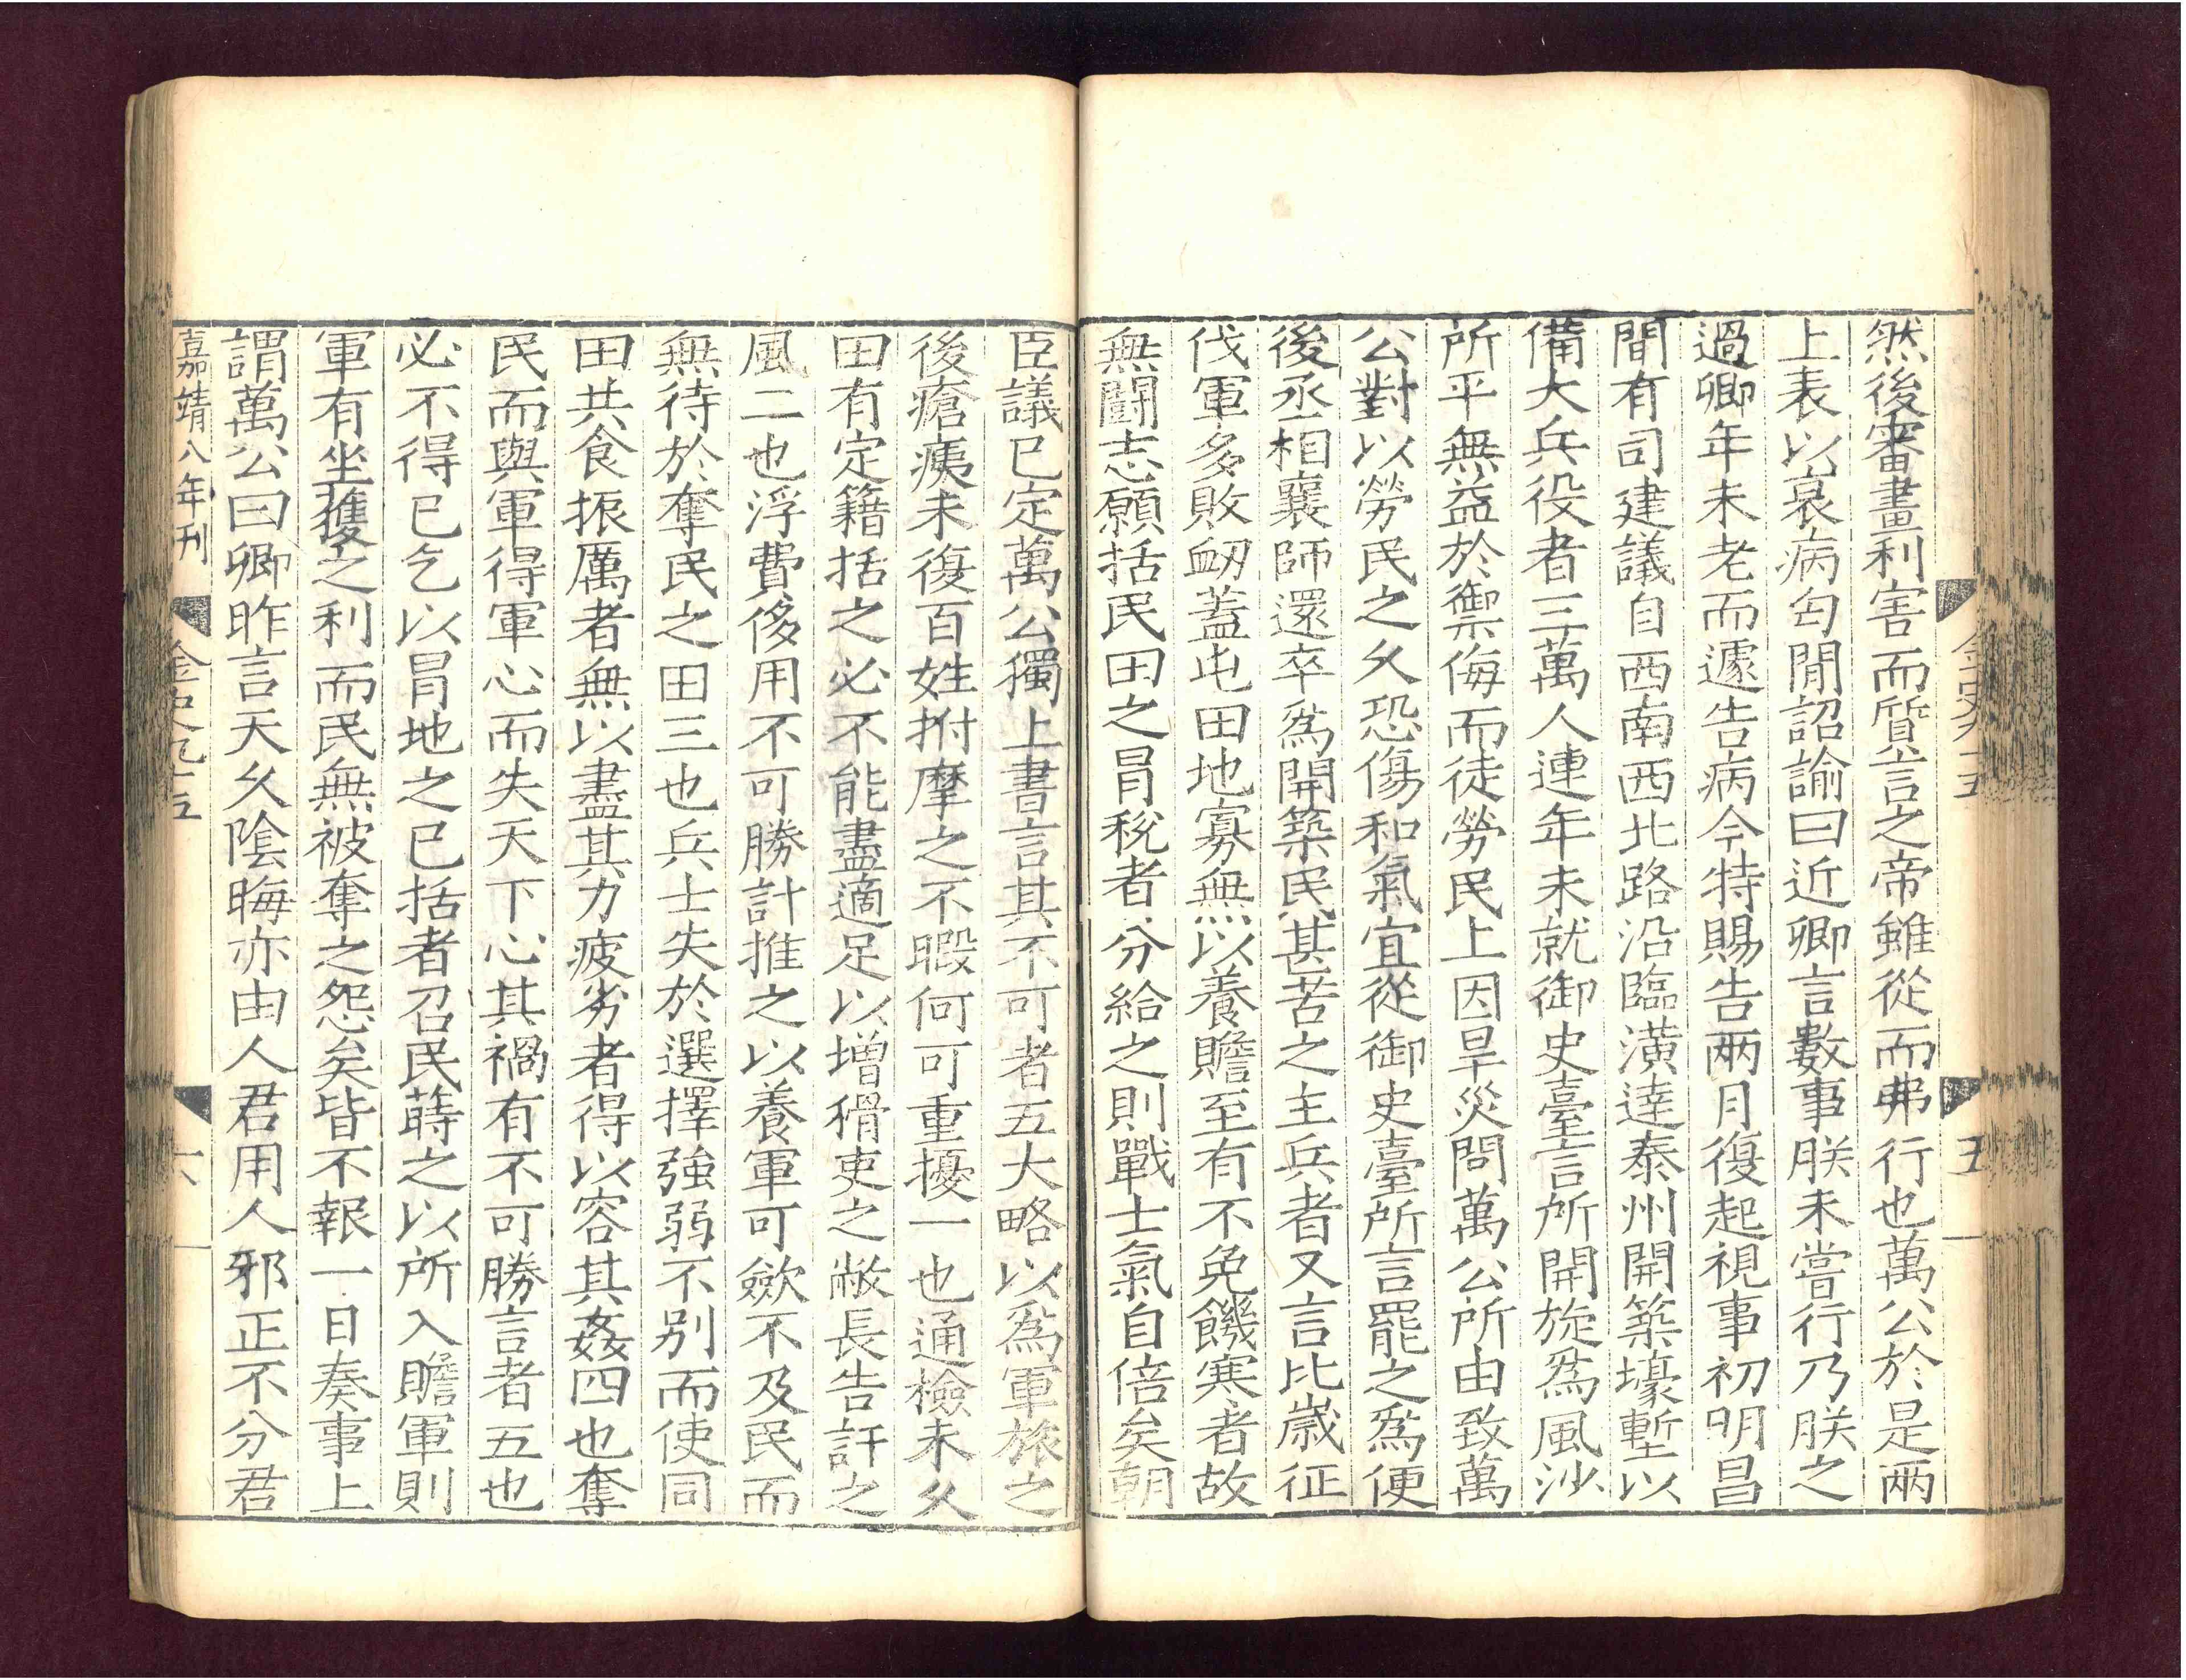 金史九十五
五
然後審畫利害而質言之帝雖從而弗行也萬公於是兩
上表以衰病匄閒詔諭曰近卿言數事朕未嘗行乃朕之
過卿年未老而遽告病今特賜告兩月復起視事初明昌
間有司建議自西南西北路沿臨潢達泰州開築壕塹以
備大兵役者三萬人連年未就御史臺言所開旋爲風沙
所平無益於禦侮而徒勞民上因旱災問萬公所由致萬
公對以勞民之久恐傷和氣宜從御史臺所言罷之爲便
後丞相襄師還卒爲開築民甚苦之主兵者又言比歲征
伐軍多敗衂蓋屯田地寡無以養贍至有不免饑寒者故
無鬭志願括民田之冒稅者分給之則戰士氣自倍矣朝
臣議已定萬公獨上書言其不可者五大略以爲軍旅之
後瘡痍未復百姓拊摩之不暇何可重擾一也通檢未久
田有定籍括之必不能盡適足以增猾吏之敝長告訐之
風二也浮費侈用不可勝計推之以養軍可斂不及民而
無待於奪民之田三也兵士失於選擇強弱不別而使同
田共食振厲者無以盡其力疲劣者得以容其姦四也奪
民而與軍得軍心而失天下心其禍有不可勝言者五也
必不得已乞以冒地之已括者召民蒔之以所入贍軍則
軍有坐獲之利而民無被奪之怨矣皆不報一日奏事上
謂萬公曰卿昨言天久陰晦亦由人君用人邪正不分君
嘉靖八年刊
金史九十五
六